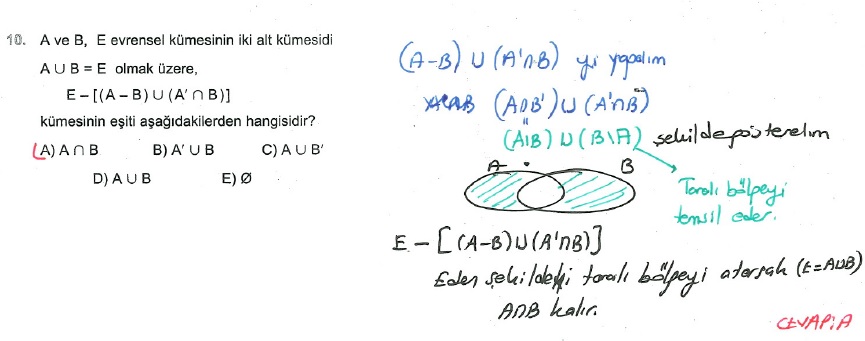 10. A ve B, E evrensel kümesinin iki alt kümesidi
A ∪ B = E olmak üzere,
E – [(A – B) ∪ (A′ ∩ B)]
kümesinin eşiti aşağıdakilerden hangisidir?
A) A ∩ B B) A′ ∪ B C) A ∪ B′
D) A ∪ B E) Ø
(A-B) ∪ (A'∩B) yi yapalım
(A∩B') ∪ (A'∩B)
(A\B) ∪ (B\A) şekilde gösterelim
A B
Taralı bölgeyi temsil eder.
E - [(A-B) ∪ (A'∩B)]
Eden şekildeki taralı bölgeyi atarsak (E=A∪B)
A∩B kalır.
CEVAP: A